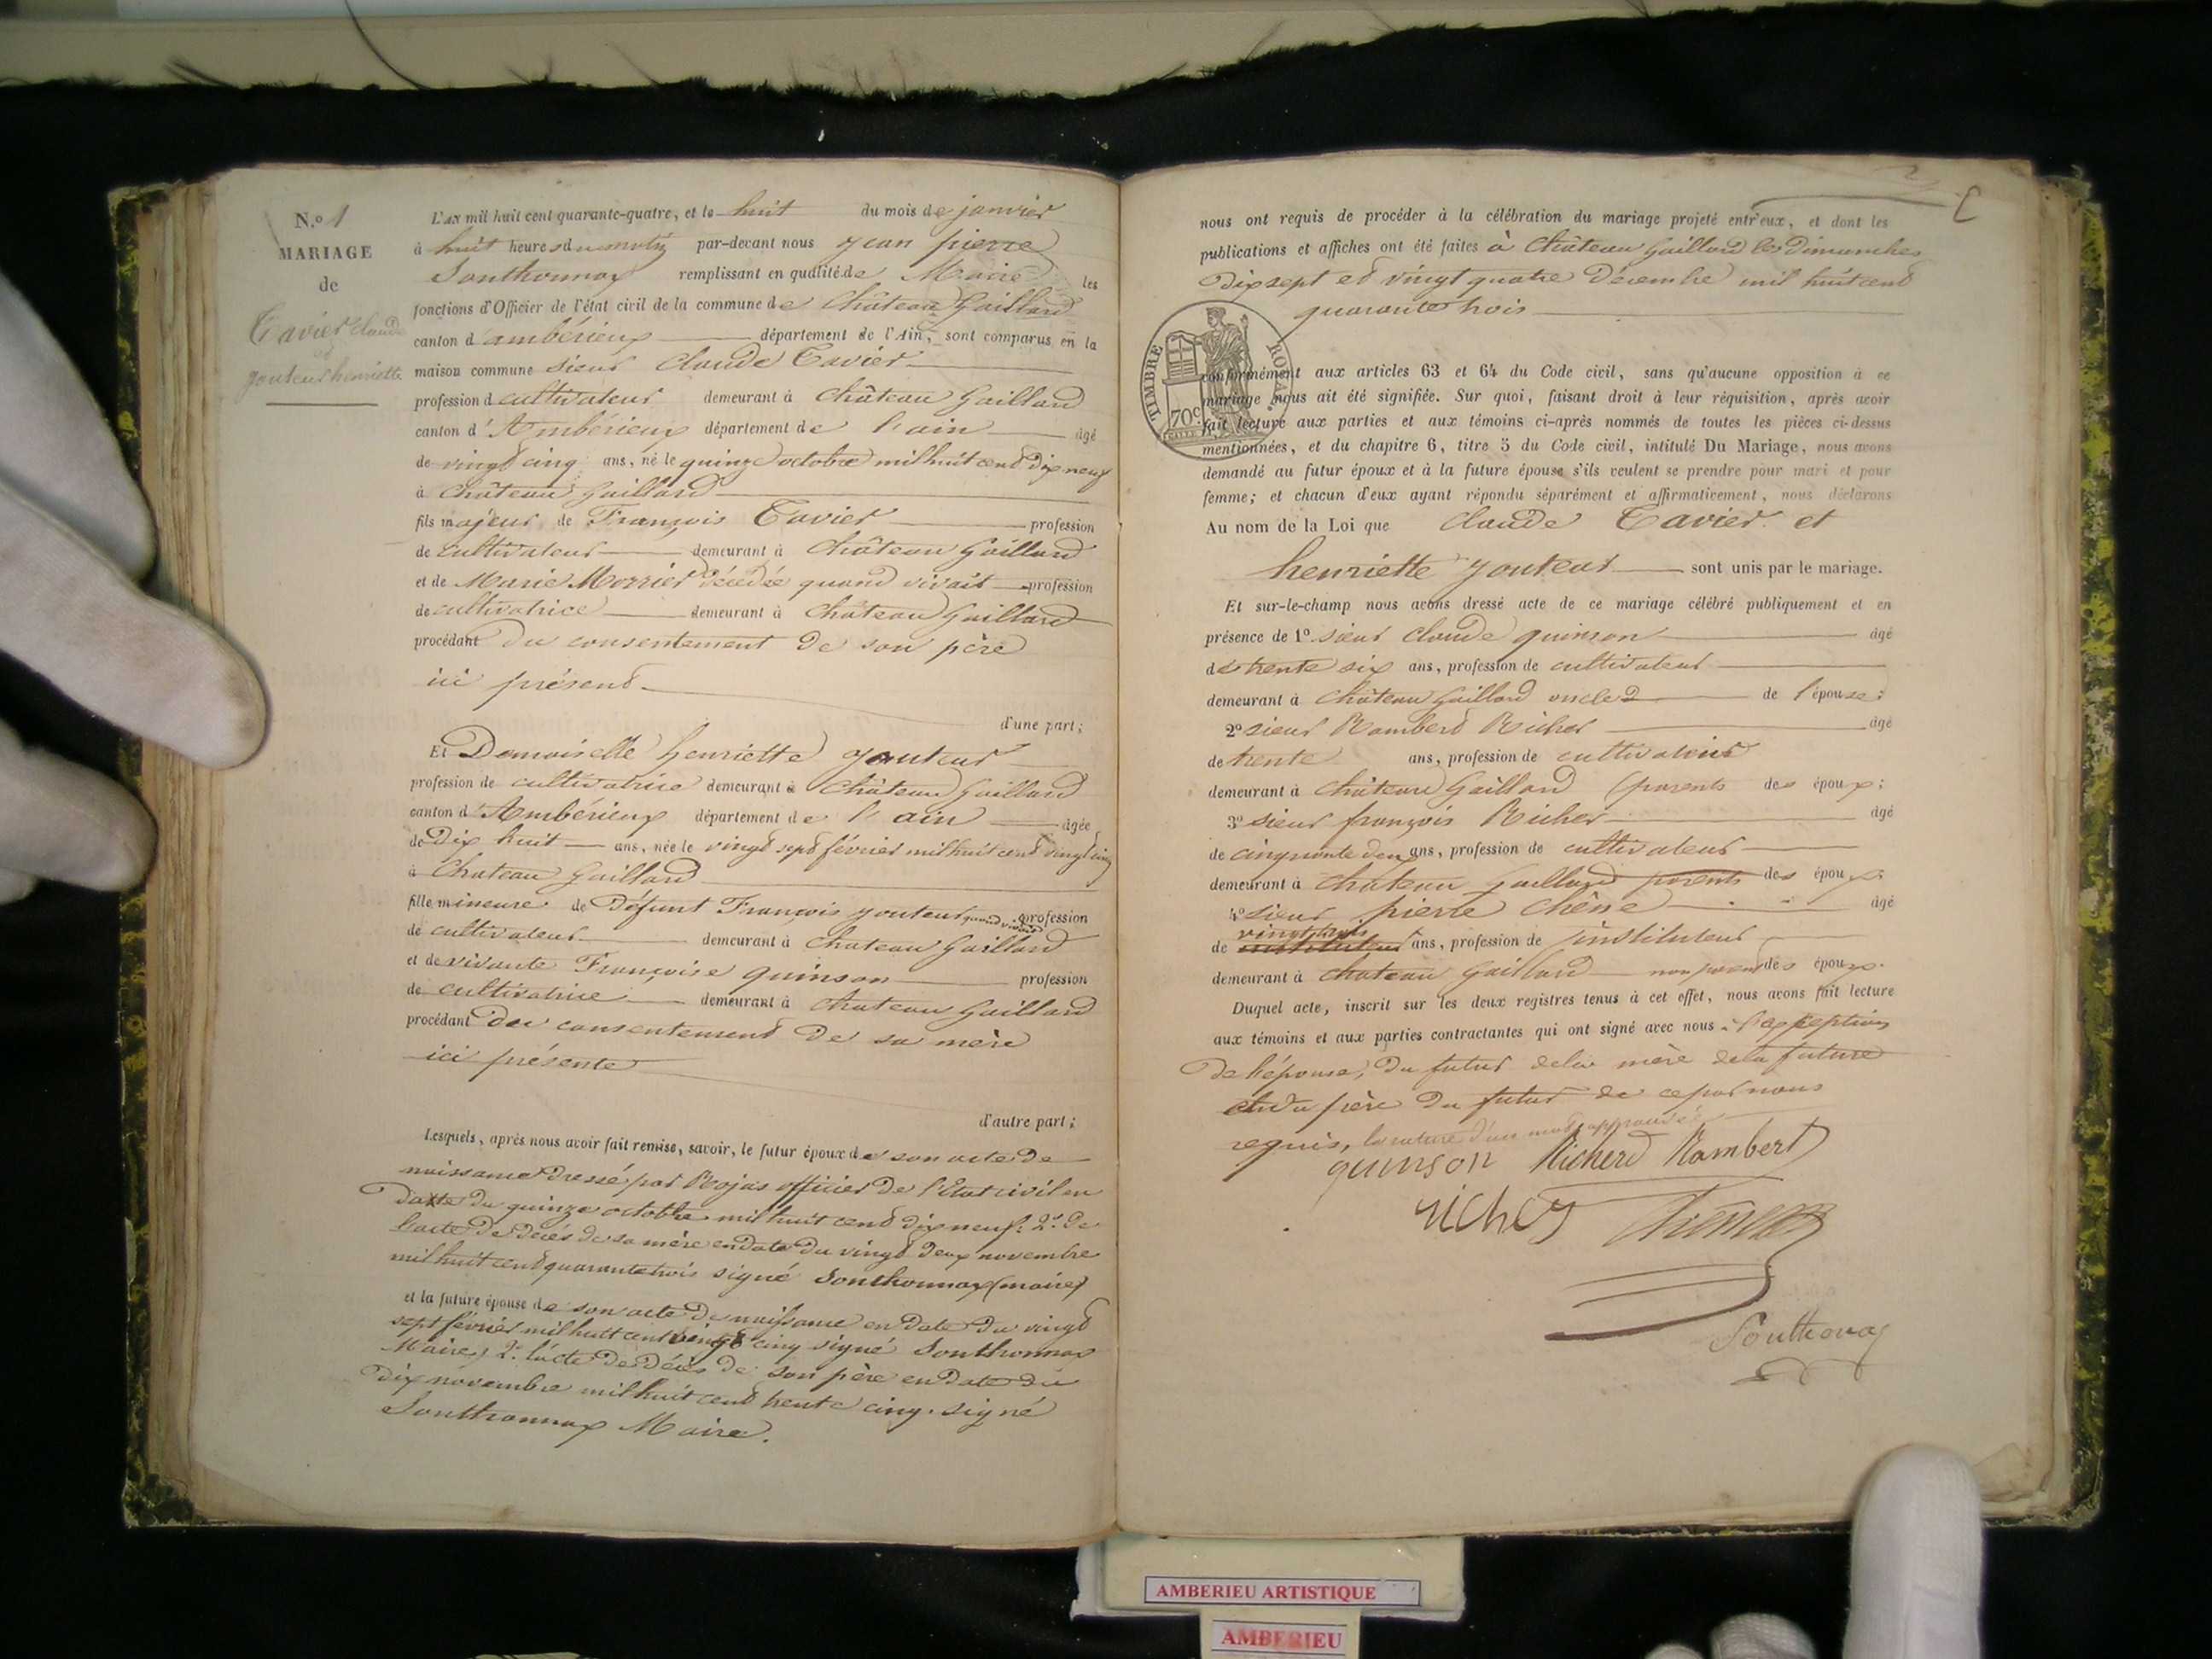 N.o 1
MARIAGE
de
Tavier Claude
et
jouteur henriette
L'AN mil huit cent quarante-quatre, et le huit du mois de janvier
à huit heures du matin par-devant nous jean pierre
Sonthonnax remplissant en qualité de Maire les
fonctions d'Officier de l'état civil de la commune de Château Gaillard
canton d'ambérieux département de l'Ain, sont comparus en la
maison commune sieur Claude Tavier
profession d cultivateur demeurant à Château Gaillard
canton d'Ambérieux département de l'ain âgé
de vingt cinq ans, né le quinze octobre mil huit cent dix neuf
à Château Gaillard
fils majeur de François Tavier profession
de cultivateur demeurant à Château Gaillard
et de Marie Morrier décédée quand vivait profession
de cultivatrice demeurant à Château Gaillard
procédant du consentement de son père
ici présent
d'une part;
Et Demoiselle henriette jouteur
profession de cultivatrice demeurant à Château Gaillard
canton d'Ambérieux département de l'ain âgée
de Dix huit ans, née le vingt sept février mil huit cent vingt cinq
à Chateau Gaillard
fille mineure de Défunt François jouteur quand vivait profession
de cultivateur demeurant à Chateau Gaillard
et de vivante Françoise quinson profession
de cultivatrice demeurant à Chateau Gaillard
procédant du consentement de sa mère
ici présente
d'autre part;
Lesquels, après nous avoir fait remise, savoir, le futur époux de son acte de
naissance dressé par Rojas officier de l'Etat civil en
datte du quinze octobre mil huit cent dix neuf. 2o. De
l'acte de décès de sa mère en date du vingt deux novembre
mil huit cent quarante trois signé Sonthonnax (maire)
et la future épouse de son acte de naissance en date du vingt
sept février mil huit cent vingt cinq signé Sonthonnax
Maire, 2o. l'acte de décès de son père en date du
Dix novembre mil huit cent trente cinq. signé
Sonthonnax Maire.
nous ont requis de procéder à la célébration du mariage projeté entr'eux, et dont les
publications et affiches ont été faites à Château Gaillard les Dimanches
Dix sept et vingt quatre Décembre mil huit cent
quarante trois
TIMBRE ROYAL
70c
conformément aux articles 63 et 64 du Code civil, sans qu'aucune opposition à ce
mariage nous ait été signifiée. Sur quoi, faisant droit à leur réquisition, après avoir
fait lecture aux parties et aux témoins ci-après nommés de toutes les pièces ci-dessus
mentionnées, et du chapitre 6, titre 5 du Code civil, intitulé Du Mariage, nous avons
demandé au futur époux et à la future épouse s'ils veulent se prendre pour mari et pour
femme; et chacun d'eux ayant répondu séparément et affirmativement, nous déclarons
Au nom de la Loi que Claude Tavier et
henriette jouteur sont unis par le mariage.
Et sur-le-champ nous avons dressé acte de ce mariage célébré publiquement et en
présence de 1o. sieur Claude quinson âgé
de trente six ans, profession de cultivateur
demeurant à Château Gaillard oncle de l'épouse;
2o sieur Rambert Richer âgé
de trente ans, profession de cultivateur
demeurant à Château Gaillard parents des époux;
3o sieur françois Richer âgé
de cinquante deux ans, profession de cultivateur
demeurant à chateau Gaillard parents des époux;
4o sieur pierre Chêne âgé
vingt trois
de instituteur ans, profession de instituteur
demeurant à chateau Gaillard non parent des époux.
Duquel acte, inscrit sur les deux registres tenus à cet effet, nous avons fait lecture
aux témoins et aux parties contractantes qui ont signé avec nous à l'exception
de l'épouse, du futur de la mère de la future
et du père du futur de ce par nous
requis, la rature d'un mot approuvée
quinson Richerd Rambert
richer Chêne
Sonthonax
AMBERIEU ARTISTIQUE
AMBERIEU